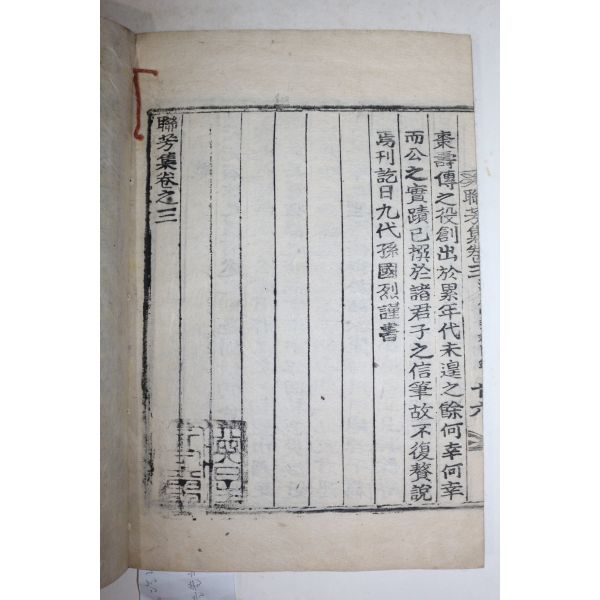 聯芳集卷三
廿六
棗壽傳之役創出於累年代未遑之餘何幸何幸
而公之實蹟已撰於諸君子之信筆故不復贅說
焉刊訖日九代孫國烈謹書
聯芳集卷之三